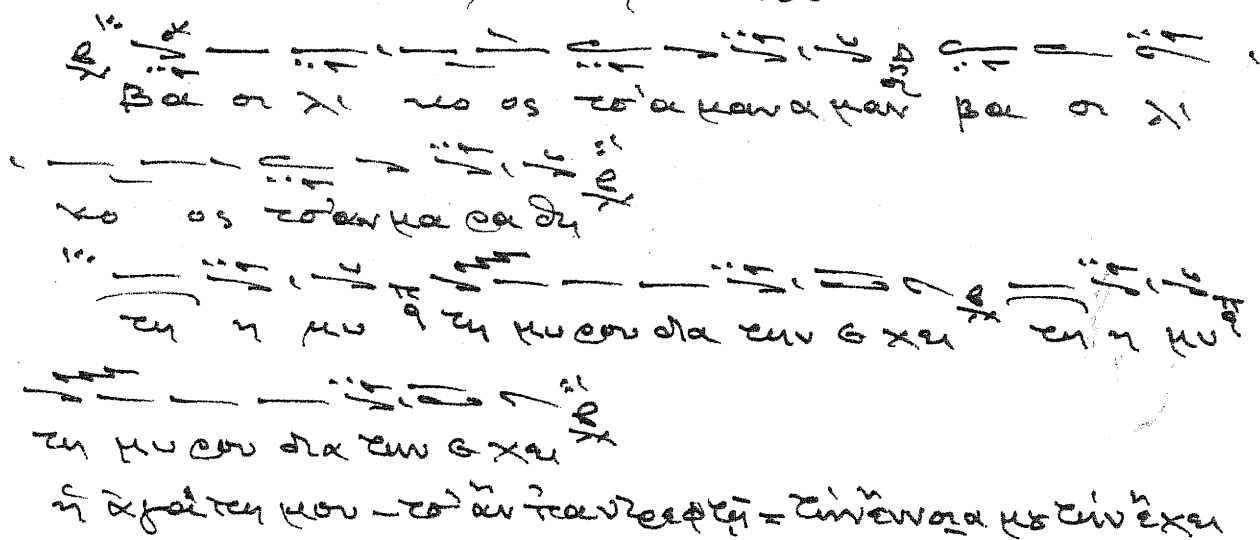 Βα σι λι κο ος τσ' α μαν α μαν βα σι λι
κο ος τσ' αν μα ρα θη
τη η μυ τη μυ ρου δια την ε χει τη η μυ
τη μυ ρου δια την ε χει
ἡ ἀγάπη μου – τσ' ἂν παντρεφτῇ = τὴν ἔννοια μου τὴν ἔχει